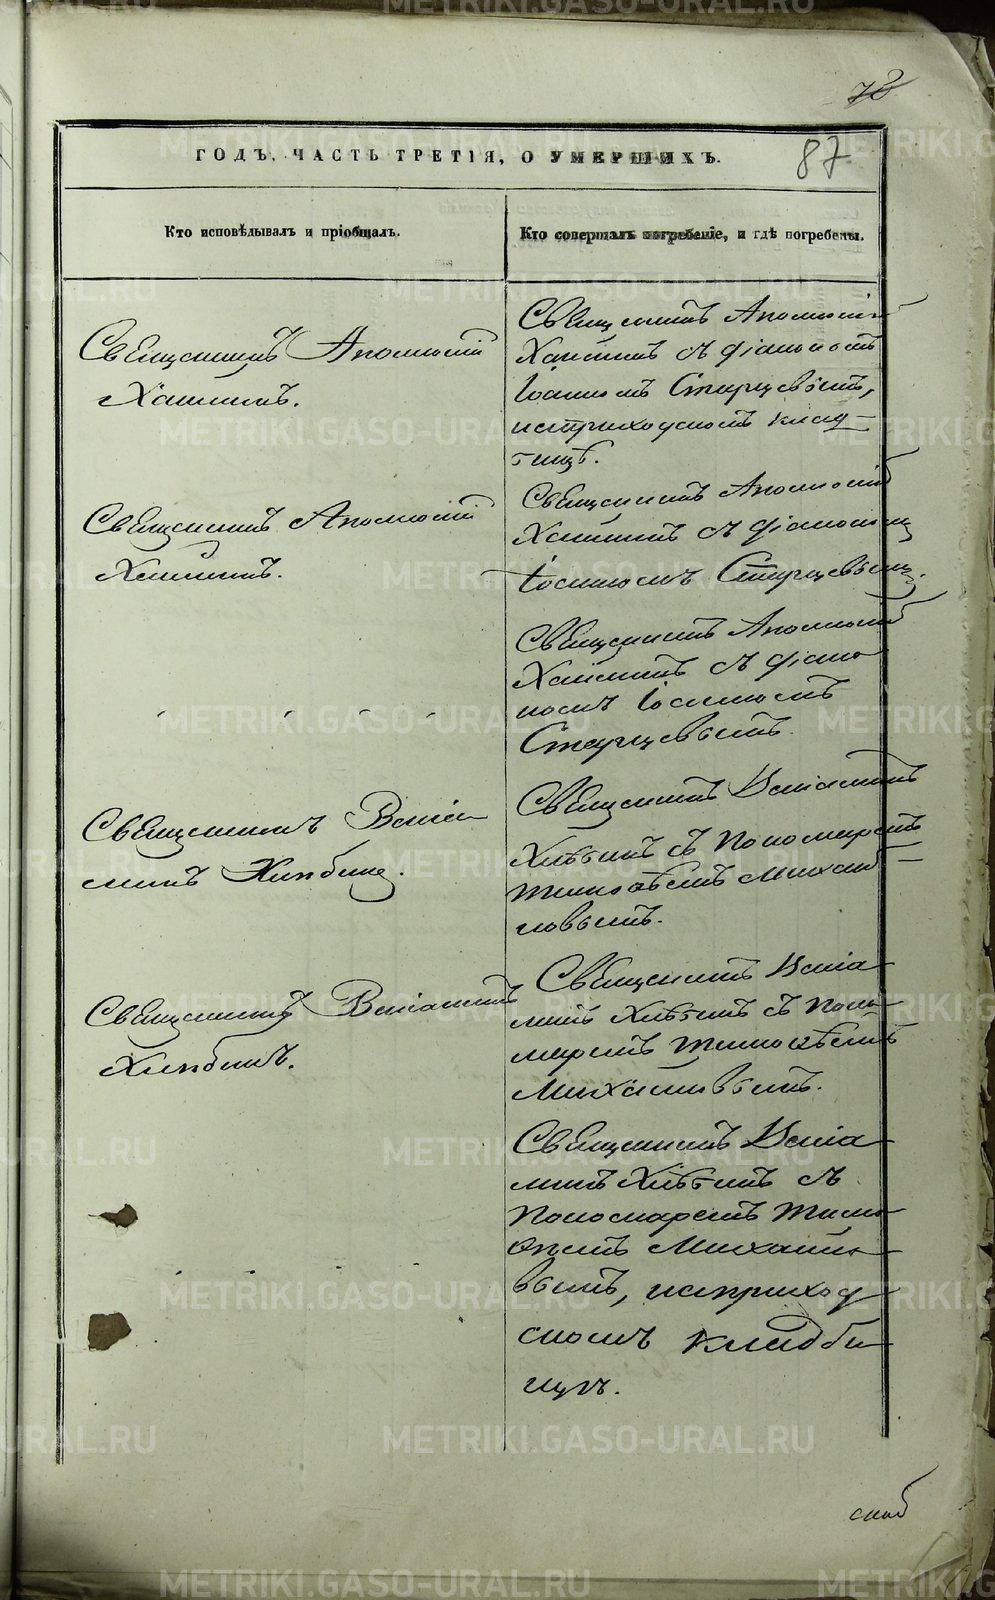 78
87
ГОДЪ, ЧАСТЬ ТРЕТІЯ, О УМЕРШИХЪ.
Кто исповѣдывалъ и пріобщалъ.
Кто совершалъ погребеніе, и гдѣ погребены.
Священникъ Аполлоній
Священникъ Аполлоній
съ діакономъ
Іоанномъ Старцевымъ,
на приходскомъ клад-
бищѣ.
Священникъ Аполлоній
Священникъ Аполлоній
съ діакономъ
Іоанномъ Старцевымъ.
Священникъ Аполлоній
съ діако-
номъ Іоанномъ
Старцевымъ.
Священникъ Веніа-
минъ Хлѣбинъ.
Священникъ Веніаминъ
Хлѣбинъ съ Пономаремъ
Тимофѣемъ Михай-
ловымъ.
Священникъ Веніаминъ
Хлѣбинъ.
Священникъ Веніа-
минъ Хлѣбинъ съ Поно-
маремъ Тимофѣемъ
Михайловымъ.
Священникъ Веніа-
минъ Хлѣбинъ съ
Пономаремъ Тимо-
фѣемъ Михайло-
вымъ, на приход-
скомъ кладби-
щѣ.
METRIKI.GASO-URAL.RU